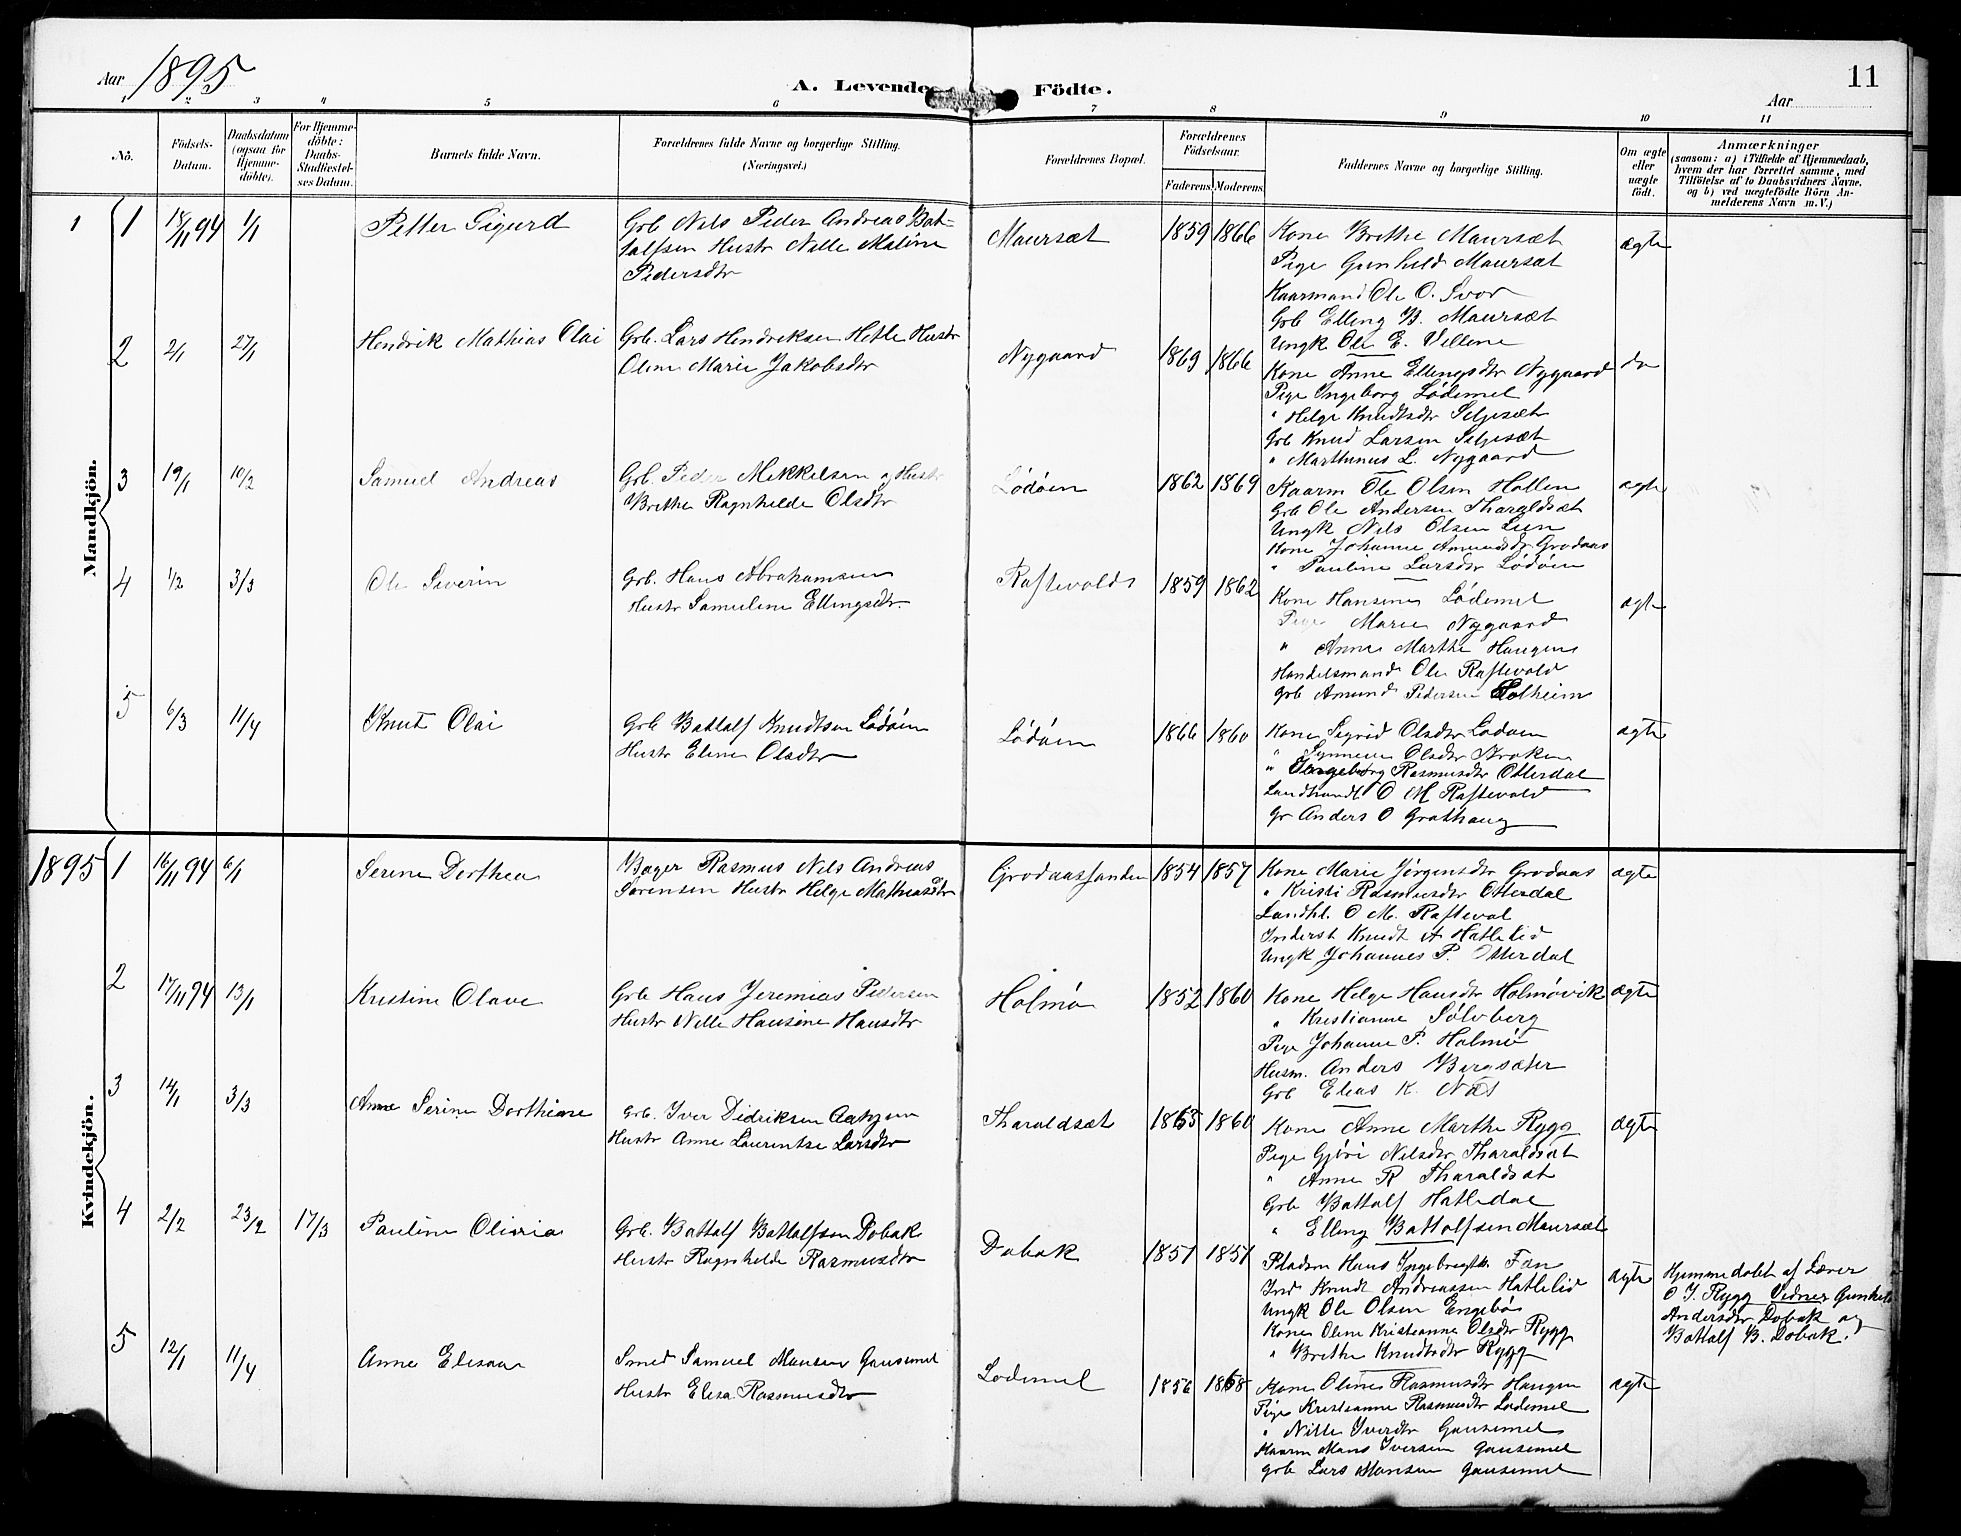 Aar 1895
A. Levende Födte.
11
Aar
1 2 3 4 5 6 7 8 9 10 11
No.
Födsels-Datum.
Daabsdatum (ogsaa for Hjemme-döbte).
For Hjemme-döbte: Daabs-Stadfæstel-ses Datum.
Barnets fulde Navn.
Forældrenes fulde Navne og borgerlige Stilling. (Næringsvei.)
Forældrenes Bopæl.
Forældrenes Födselsaar.
Faderens. Moderens.
Faddernes Navne og borgerlige Stilling.
Om ægte eller uægte födt.
Anmærkninger
(saasom: a) i Tilfælde af Hjemmedaab,
hvem der har forrettet samme, med
Tilföielse af to Daabsvidners Navne,
og b) ved uægtefödte Börn An-
melderens Navn m. V.)
Mandkjön.
1
1 18/11 94 1/1 Petter Sigurd
Grb Nils Peder Andreas Bot-
talfsen Hustr Nille Maline
Pedersdtr
Maursæt 1859 1866
Kone Brithe Maursæt
Pige Gunhild Maursæt
Kaarmand Ole O. Svor
Grb Elling B. Maursæt
Ungk Ole E. Vellene
ægte
2 2/1 27/1 Hendrik Mathias Olai
Grb. Lars Hendriksen Hetle Hustr
Oline Marie Jakobsdtr
Nygaard 1869 1866
Kone Anne Ellingsdtr Nygaard
Pige Ingeborg Lødemel
" Helge Knudtsdtr Seljesæt
Grb Knud Larsen Seljesæt
" Marthinus L. Nygaard
do
3 19/1 10/2 Samuel Andreas
Grb. Peder Mikkelsen og Hustr
Brithe Ragnhilde Olsdtr
Lødøen 1862 1869
Kaarm Ole Olsen Hollen
Grb Ole Andersen Tharaldsæt
Ungk Nils Olsen Lien
Kone Johanne Amundsdtr Grodaas
" Pauline Larsdtr Lødøen
ægte
4 1/2 3/3 Ole Severin
Grb. Hans Abrahamsen
Hustr Samueline Ellingsdtr.
Raftevolds 1859 1862
Kone Hansine Lødemel
Pige Marie Nygaard
" Anne Marthe Haugen
Handelsmand Ole Raftevold
Grb Amund Pedersen Solheim
ægte
5 6/3 11/4 Knut Olai
Grb Bottolf Knudtsen Lødøen
Hustr Eline Olsdtr
Lødøen 1866 1860
Kone Sigrid Olsdtr Lødøen
" Synneve Olsdtr Kroken
" Ingeborg Rasmusdtr Otterdal
Landhandl O M Raftevold
Gr Anders O Grothaug
ægte
1895
Kvindekjön.
1 16/11 94 6/1 Serine Dorthea
Bager Rasmus Nils Andreas
Sørensen Hustr Helge Mathiasdtr
Grodaassanden 1854 1857
Kone Marie Jørgensdtr Grodaas
" Kristi Rasmusdtr Otterdal
Landhl. O M. Raftevol
Inderst Knudt A Hatlelid
Ungk Johannes P. Otterdal
ægte
2 17/11 94 13/1 Kristine Olave
Grb Hans Jeremias Pedersen
Hustr Nille Hansine Hansdtr
Holmø 1852 1860
Kone Helge Hansdtr Holmøvik
" Kristianne Sølvberg
Pige Johanne P. Holmø
Husm. Anders Bergsæter
Grb Elias K. Næs
ægte
3 14/1 3/3 Anne Serine Dorthiane
Grb. Iver Didriksen Aahjem
Hustr Anne Laurentse Larsdtr
Tharaldsæt 1865 1860
Kone Anne Marthe Rygg
Pige Gjøri Nilsdtr Tharaldsæt
" Anne R Tharaldsæt
Grb Bottolf Hatledal
" Elling Bottolfsen Maursæt
ægte
4 2/2 23/2 17/3 Pauline Olivia
Grb. Bottolf Bottolfsen Dobak
Hustr Ragnhilde Rasmusdtr
Dobak 1851 1851
Pladsm Hans Ingebregtsn Fan
Ind Knudt Andreassen Hatlelid
Ungk Ole Olsen Engebø
Kone Oline Kristianne Olsdtr Rygg
" Brithe Knudtsdtr Rygg
ægte
Hjemmedøbt af Lærer
O J. Rygg Vidner Gunhild
Andersdtr Dobak og
Bottolf B. Dobak.
5 12/1 11/4 Anne Elisaa
Smed Samuel Monsen Gausemel
Hustr Elisa Rasmusdtr
Lødemel 1856 1858
Kone Oline Rasmusdtr Haugen
Pige Kristianne Rasmusdtr Lødemel
" Nille Iversdtr Gausemel
Kaarm Mons Iversen Gausemel
Grb Lars Monsen Gausemel
ægte